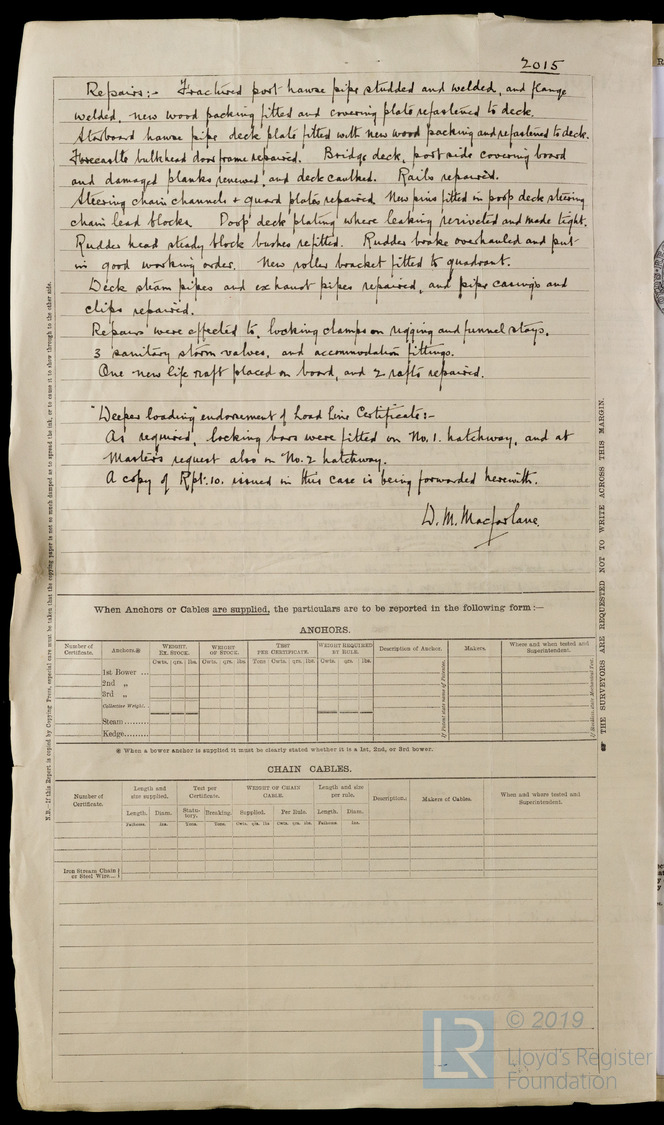 2015
Repairs:- Fractured port hawse pipe studded and welded, and flange
welded, new wood packing fitted and covering plate refastened to deck.
Starboard hawse pipe deck plate fitted with new wood packing and refastened to deck.
Forecastle bulkhead door frame repaired. Bridge deck, port side covering board
and damaged planks renewed, and deck caulked. Rails repaired.
Steering chain channels + guard plates repaired. New pins fitted in poop deck steering
chain lead blocks. Poop deck plating where leaking reriveted and made tight.
Rudder head steady block bushes refitted. Rudder brake overhauled and put
in good working order. New roller bracket fitted to quadrant.
Deck steam pipes and exhaust pipes repaired, and pipe casings and
clips repaired.
Repairs were effected to, locking clamps on rigging and funnel stays,
3 sanitary storm valves, and accommodation fittings.
One new life raft placed on board, and 2 rafts repaired.
"Deeper loading" endorsement of Load Line Certificate:-
As required, locking bars were fitted on No. 1. hatchway, and at
Master's request also on No. 2 hatchway.
A copy of Rpt. 10. issued in this case is being forwarded herewith.
W. M. Macfarlane.
When Anchors or Cables are supplied, the particulars are to be reported in the following form:—
ANCHORS.
Number of Certificate. Anchors.* WEIGHT. EX. STOCK. WEIGHT OF STOCK. TEST PER CERTIFICATE. WEIGHT REQUIRED BY RULE. Description of Anchor. Makers. Where and when tested and Superintendent.
Cwts. qrs. lbs. Cwts. qrs. lbs. Tons Cwts. qrs. lbs. Cwts. qrs. lbs.
1st Bower ...
2nd „
3rd „
Collective Weight.
Stream.........
Kedge.........
* When a bower anchor is supplied it must be clearly stated whether it is a 1st, 2nd, or 3rd bower.
CHAIN CABLES.
Number of Certificate. Length and size supplied. Test per Certificate. WEIGHT OF CHAIN CABLE. Length and size per rule. Description. Makers of Cables. When and where tested and Superintendent.
Length. Diam. Statutory. Breaking. Supplied. Per Rule. Length. Diam.
Fathoms. Ins. Tons. Tons. Cwts. qrs. lbs Cwts. qrs. lbs. Fathoms. Ins.
Iron Stream Chain or Steel Wire...
N.B.—If this Report is copied by Copying Press, especial care must be taken that the copying paper is not so much damped as to spread the ink, or to cause it to show through to the other side.
THE SURVEYORS ARE REQUESTED NOT TO WRITE ACROSS THIS MARGIN.
LR
© 2019
Lloyd's Register
Foundation